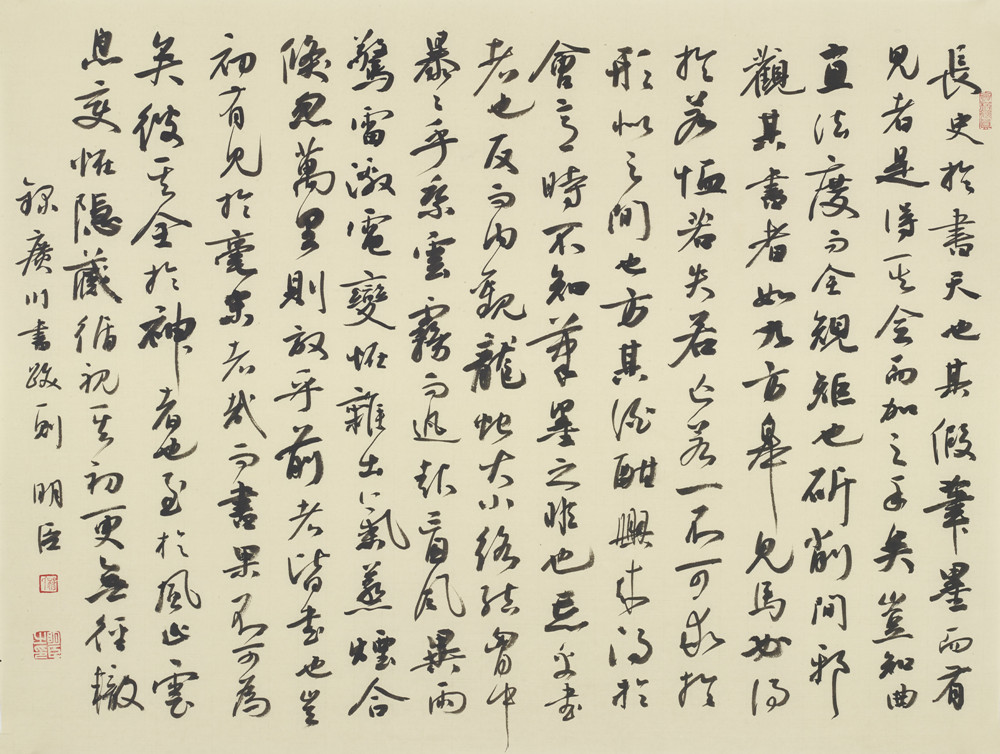 長史於書天也其假筆墨而有
見者是得其全而加之手矣豈知曲
直法度而全規矩也斫削間邪
觀其書者如九方皋見馬必得
於若恤若失若亡若一不可求於
形似之間也方其酒酣興來得於
會意時不知筆墨之非也忘乎書
者也反而內觀龍蛇大小絡結胸中
暴暴乎乘雲霧而迅起盲風異雨
驚雷激電變怪雜出氣蒸煙合
倏忽萬里則放乎前者皆書也豈
初有見於毫素者哉而書果不可為
矣彼其全於神者也至於風止雲
息變怪隱藏循視其初更無徑轍
錄廣川書跋一則 明臣